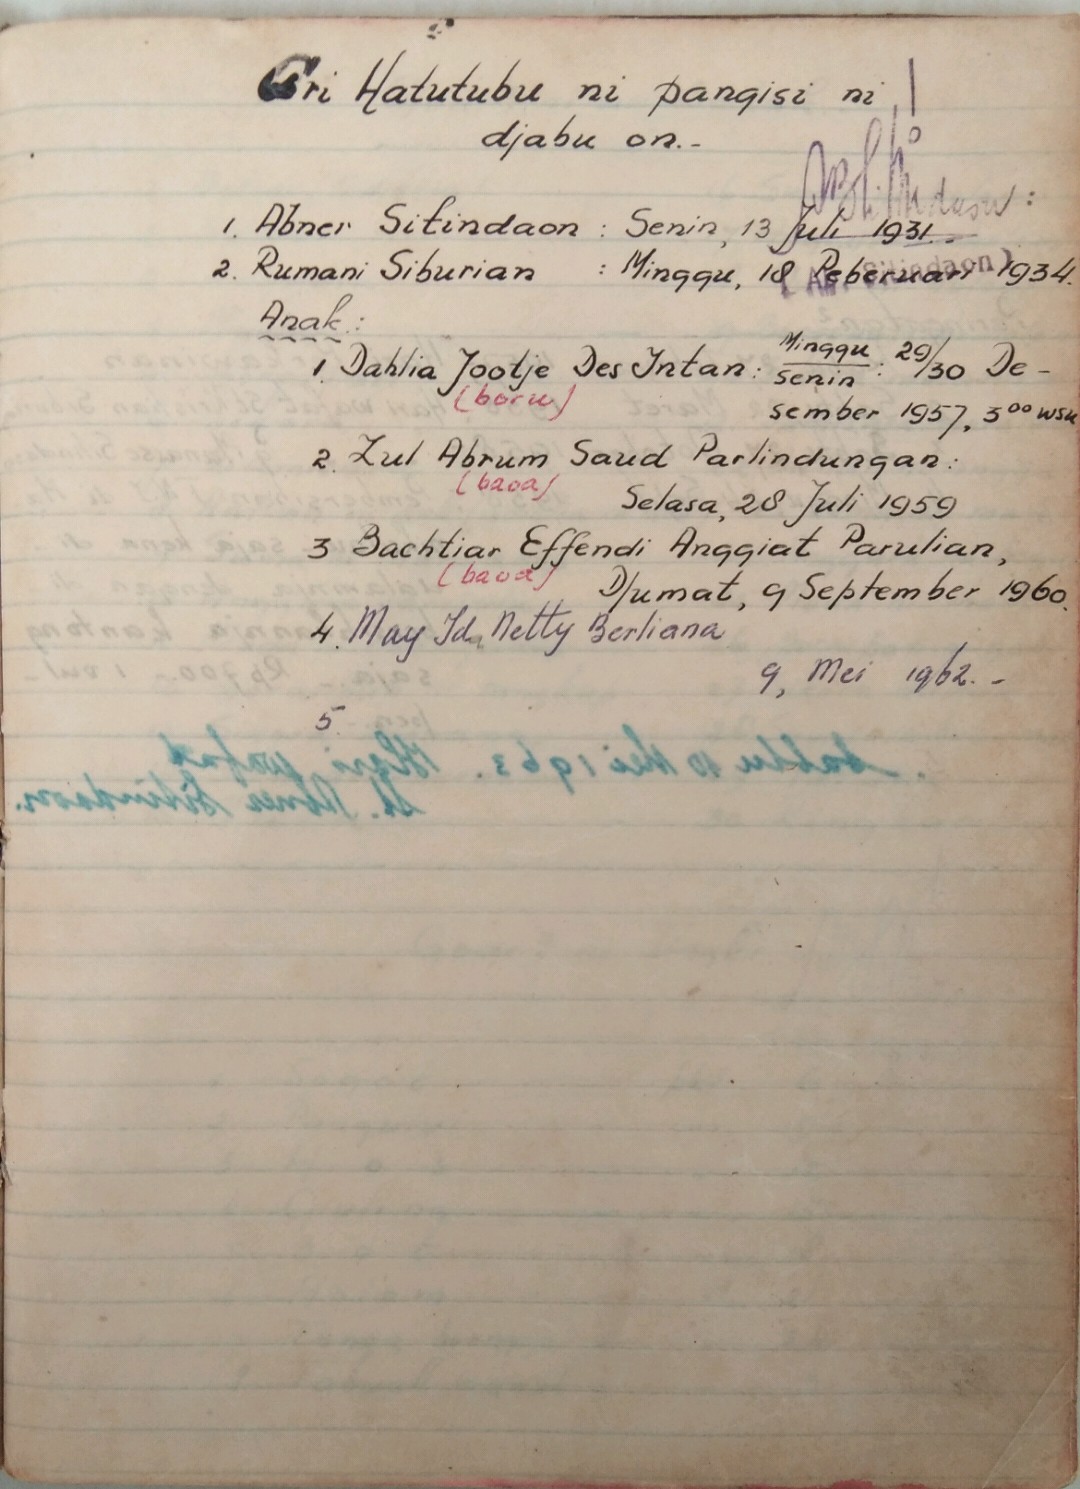 Ari Hatutubu ni pangisi ni
djabu on.-
1. Abner Sitindaon : Senin, 13 Juli 1931.-
2. Rumani Siburian : Minggu, 18 Peberuari 1934.
Sitindaon)
Anak :
1. Dahlia Jootje Des Intan : Minggu/Senin : 29/30 De-
(boru)
sember 1957, 3⁰⁰ wsu
2. Zul Abrum Saud Parlindungan :
(baoa)
Selasa, 28 Juli 1959
3 Bachtiar Effendi Anggiat Parulian,
(baoa)
Djumat, 9 September 1960.
4. May Id. Netty Berliana
9, Mei 1962.-
5.
Sabtu 10 Mei 1963. Hari wafat
St. Abner Sitindaon.